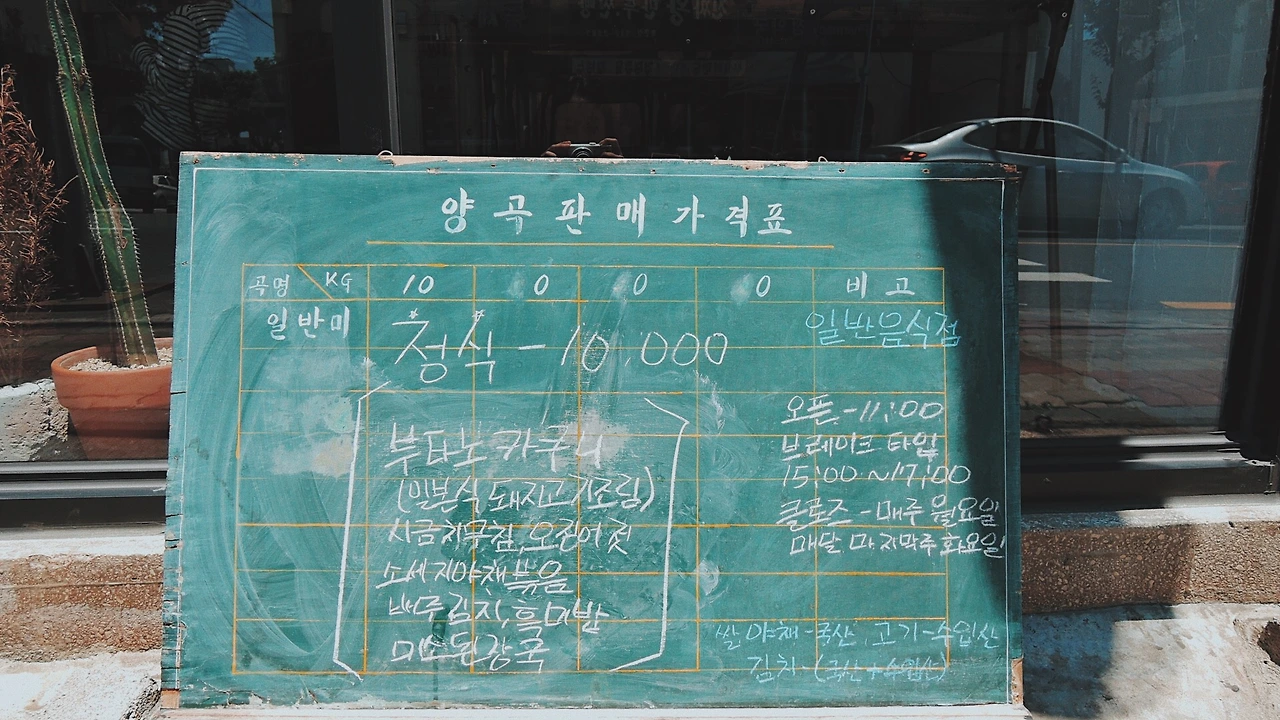 양곡판매가격표
곡명 KG 10 0 0 0 비고
일반미
정식 - 10,000
일반음식점
부타노 카쿠니
(일본식 돼지고기조림)
시금치무침, 오징어젓
소세지야채볶음
배추김치, 흑미밥
미소된장국
오픈 - 11:00
브레이크 타임
15:00 ~ 17:00
클로즈 - 매주 월요일
매달 마지막주 화요일
쌀 야채 - 국산, 고기 - 수입산
김치 - (국산 + 수입산)